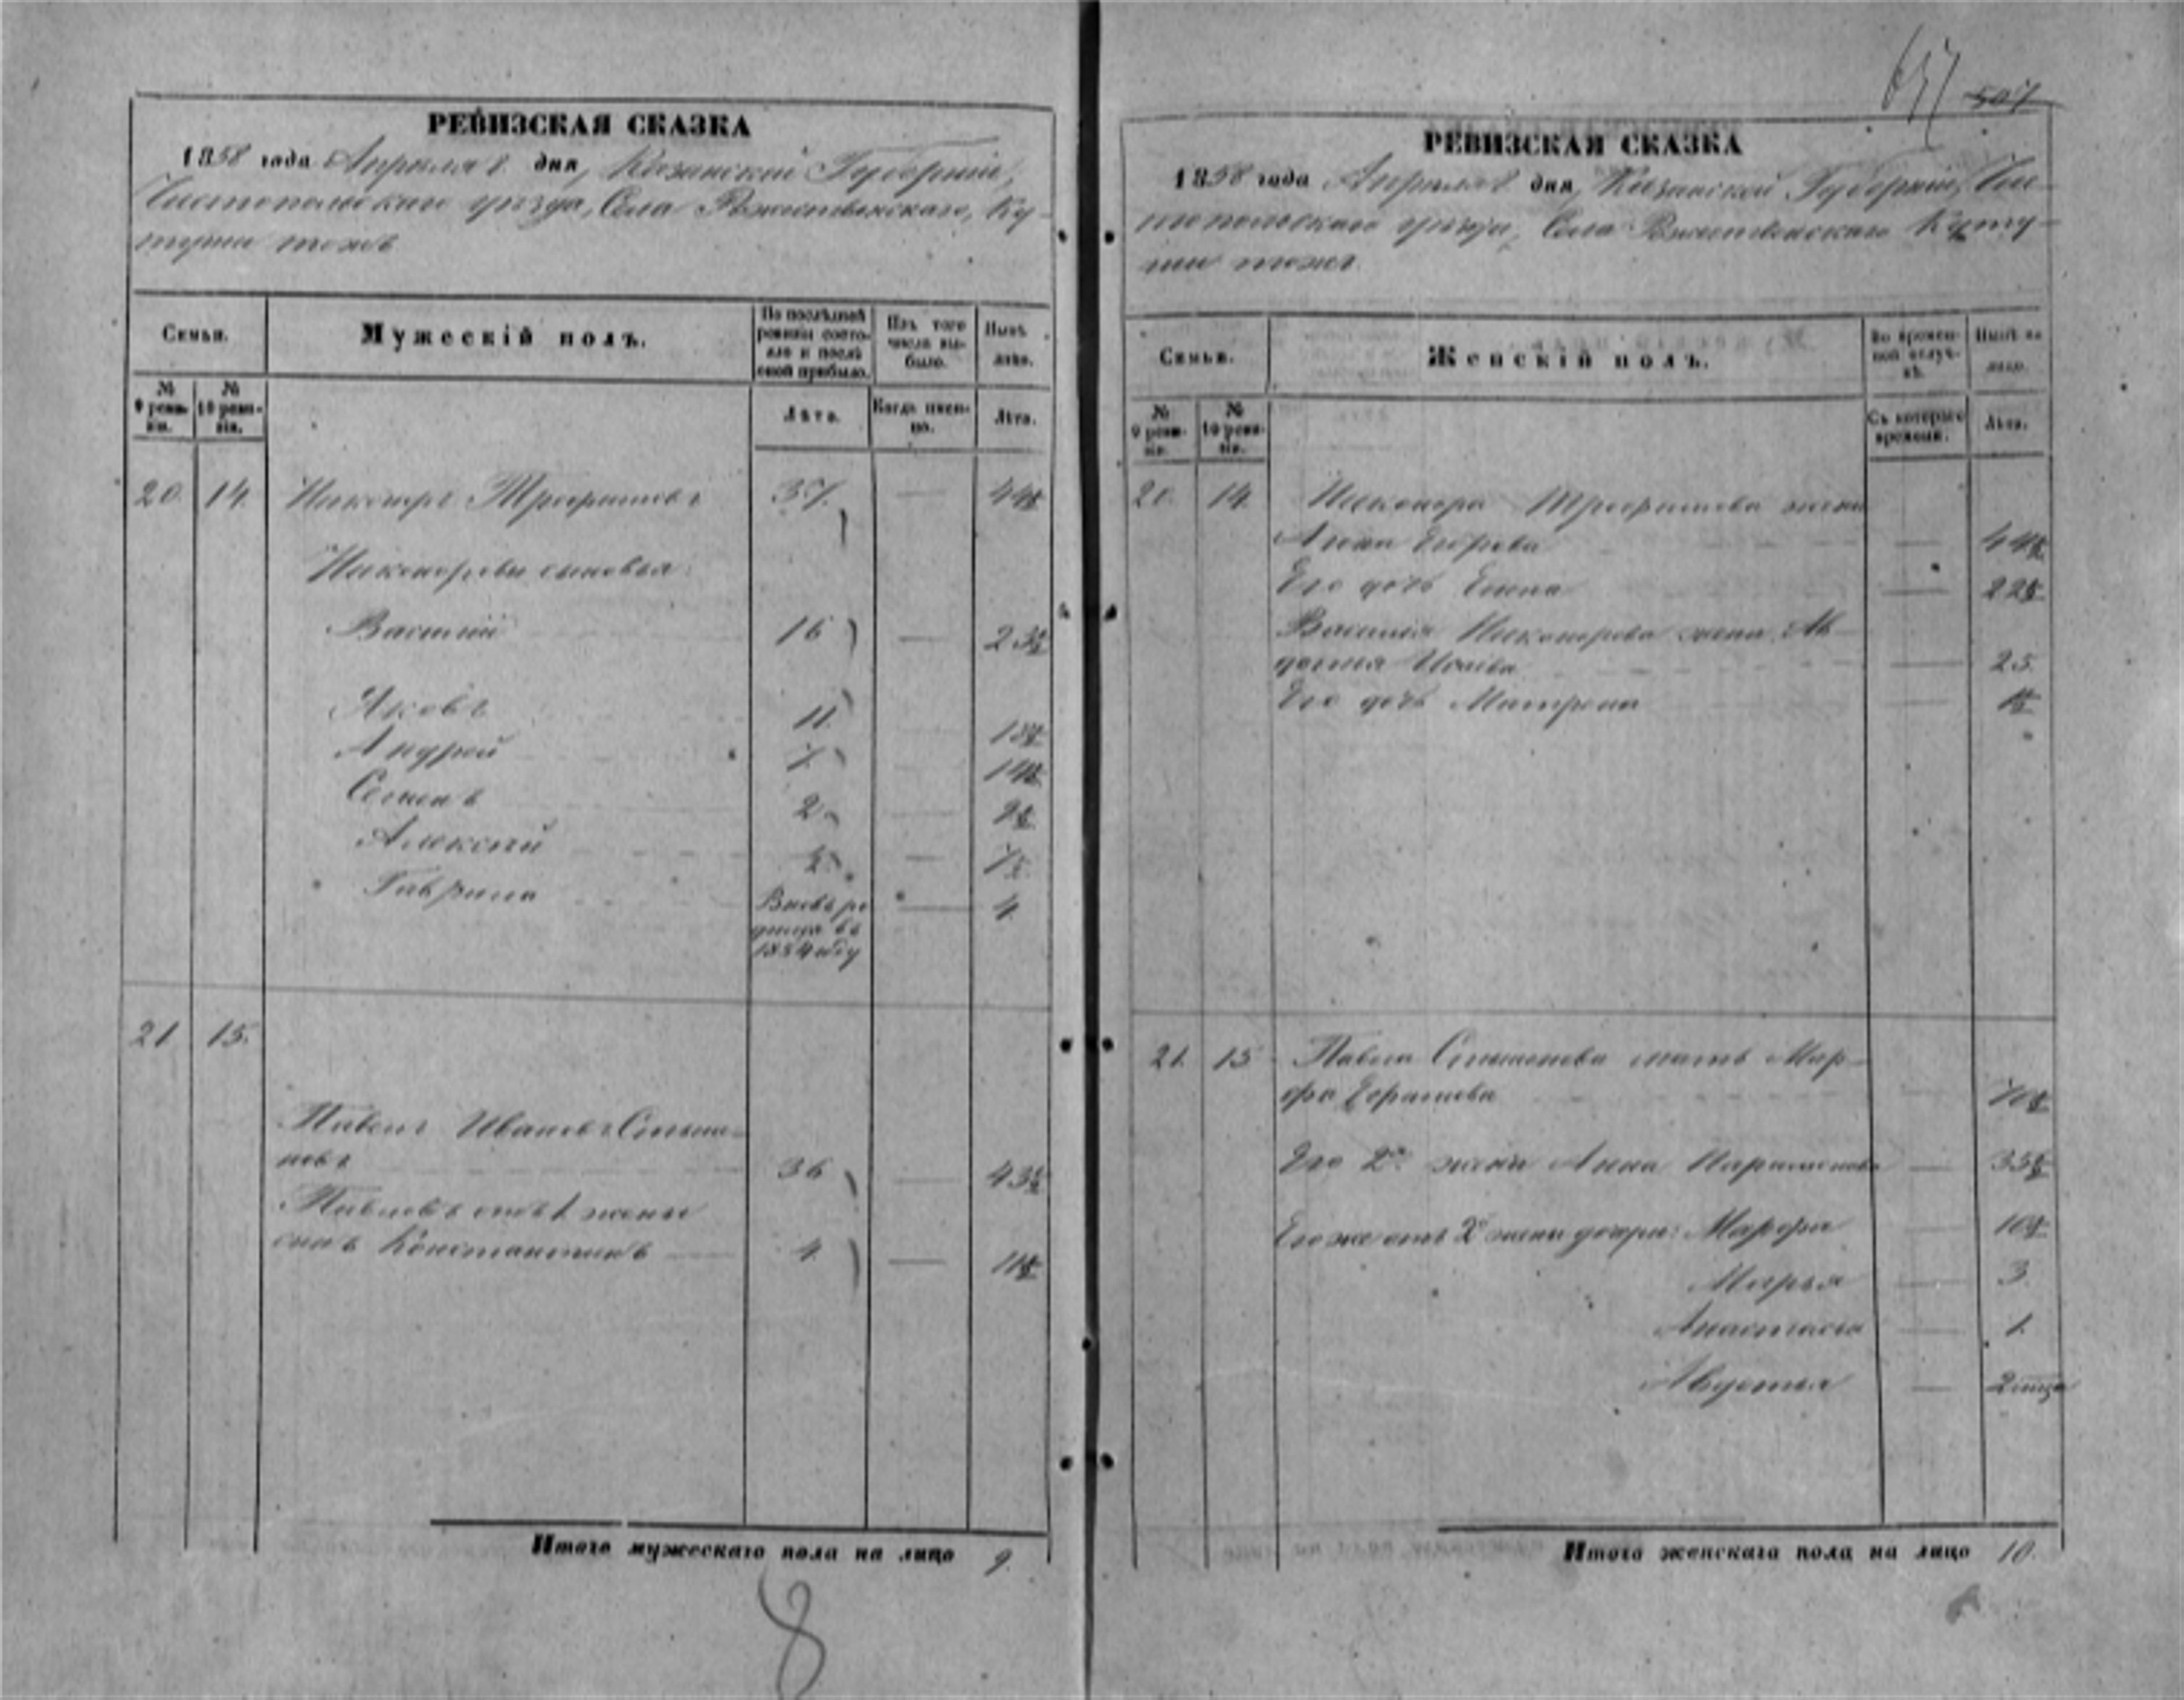 РЕВИЗСКАЯ СКАЗКА
1858 года Апреля дня, Казанской Губернии,
Чистопольскаго уезда, Села Рожественскаго, Ку-
тущи тожъ
Семьи.
Мужескій полъ.
По последней ревизіи состояло и после оной прибыло.
Изъ того числа выбыло.
Ныне лицо.
№ 9 ревизіи.
№ 10 ревизіи.
Лета.
Когда именно.
Лета.
20. 14. Никоноръ Трофимовъ 37. — 44
Никоноровы сыновья:
Василій 16 — 23
Яковъ 11.
Андрей 7. 14
Семенъ 2 9
Алексей — 7
Гаврила Вновь ро — 4
дился въ
1854 году
21 15.
Павелъ Ивановъ Степа-
новъ 36 — 43
Павловъ отъ 1 жены
сынъ Константинъ — 4. — 11
Итого мужескаго пола на лицо 9.
8
657 507
РЕВИЗСКАЯ СКАЗКА
1858 года Апреля дня, Казанской Губернии, Чис-
топольскаго уезда, Села Рожественскаго Куту-
щи тожъ.
Семьи.
Женскій полъ.
Во временной отлучке.
Ныне на лицо.
№ 9 ревизіи.
№ 10 ревизіи.
Съ котораго времени.
Лета.
20. 14. Никонора Трофимова жена
Анна Егорова — 44
Его дочь Елена — 22
Василія Никонорова жена Ав-
дотья — 25.
Его дочь Матрена — 1
21. 15 Павла Степанова мать Мар-
фа Ефремова — 70
Его 2я жена Анна Парамонова — 35
Его же отъ 2 жены дочери: Марфа — 10
Марья — 3.
Анастасія — 1.
Авдотья — 2 месяца
Итого женскаго пола на лицо 10.